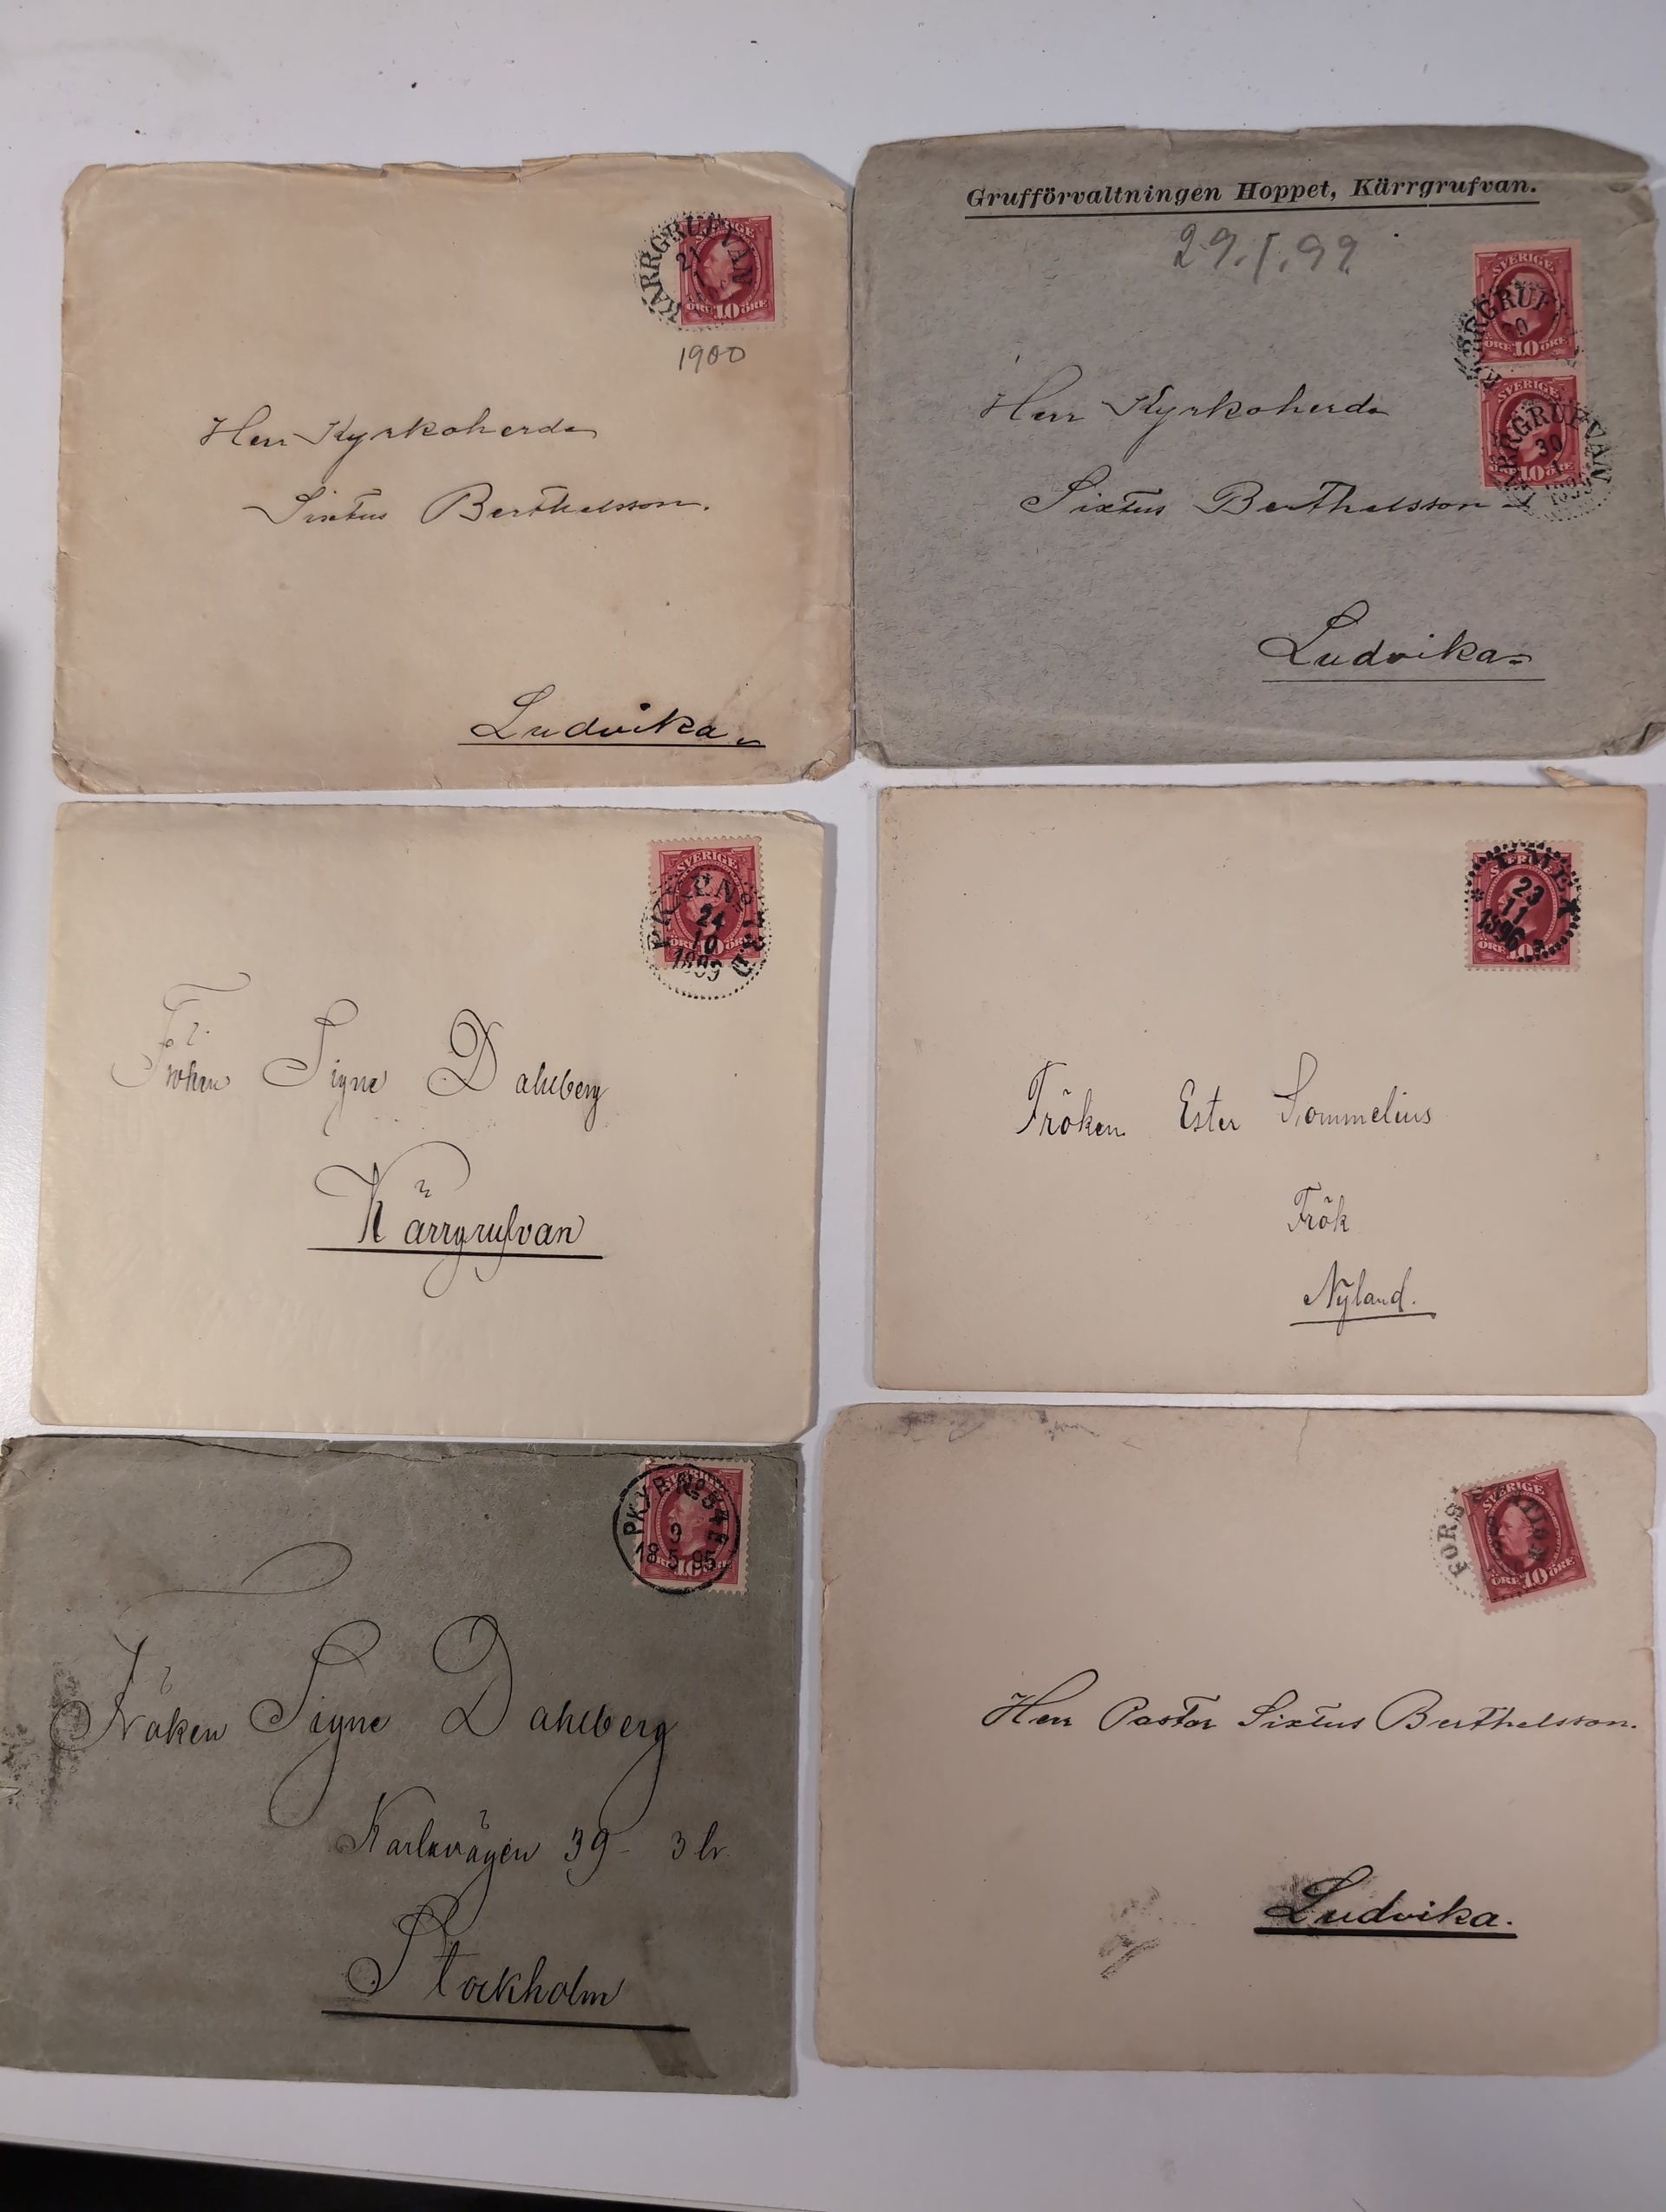 SVERIGE
ÖRE 10 ÖRE
KÄRRGRUFVAN
21
1
1900
Herr Kyrkoherden
Sixtus Berthelsson.
Ludvika
Grufförvaltningen Hoppet, Kärrgrufvan.
29.1.99
SVERIGE
ÖRE 10 ÖRE
30
SVERIGE
ÖRE 10 ÖRE
KÄRRGRUFVAN
30
1
1899
Herr Kyrkoherden
Sixtus Berthelsson
Ludvika
SVERIGE
ÖRE 10 ÖRE
24
10
Fröken Signe Dahlberg
Kärrgrufvan
ÖRE 10
23
11
1896
Fröken Ester Sommelius
Frök
Nyland.
PKXP. No
3
18 5 95
Fröken Signe Dahlberg
Karlavägen 39 - 3 tr.
Stockholm
SVERIGE
ÖRE 10 ÖRE
FORS
Herr Pastor Sixtus Berthelsson.
Ludvika.